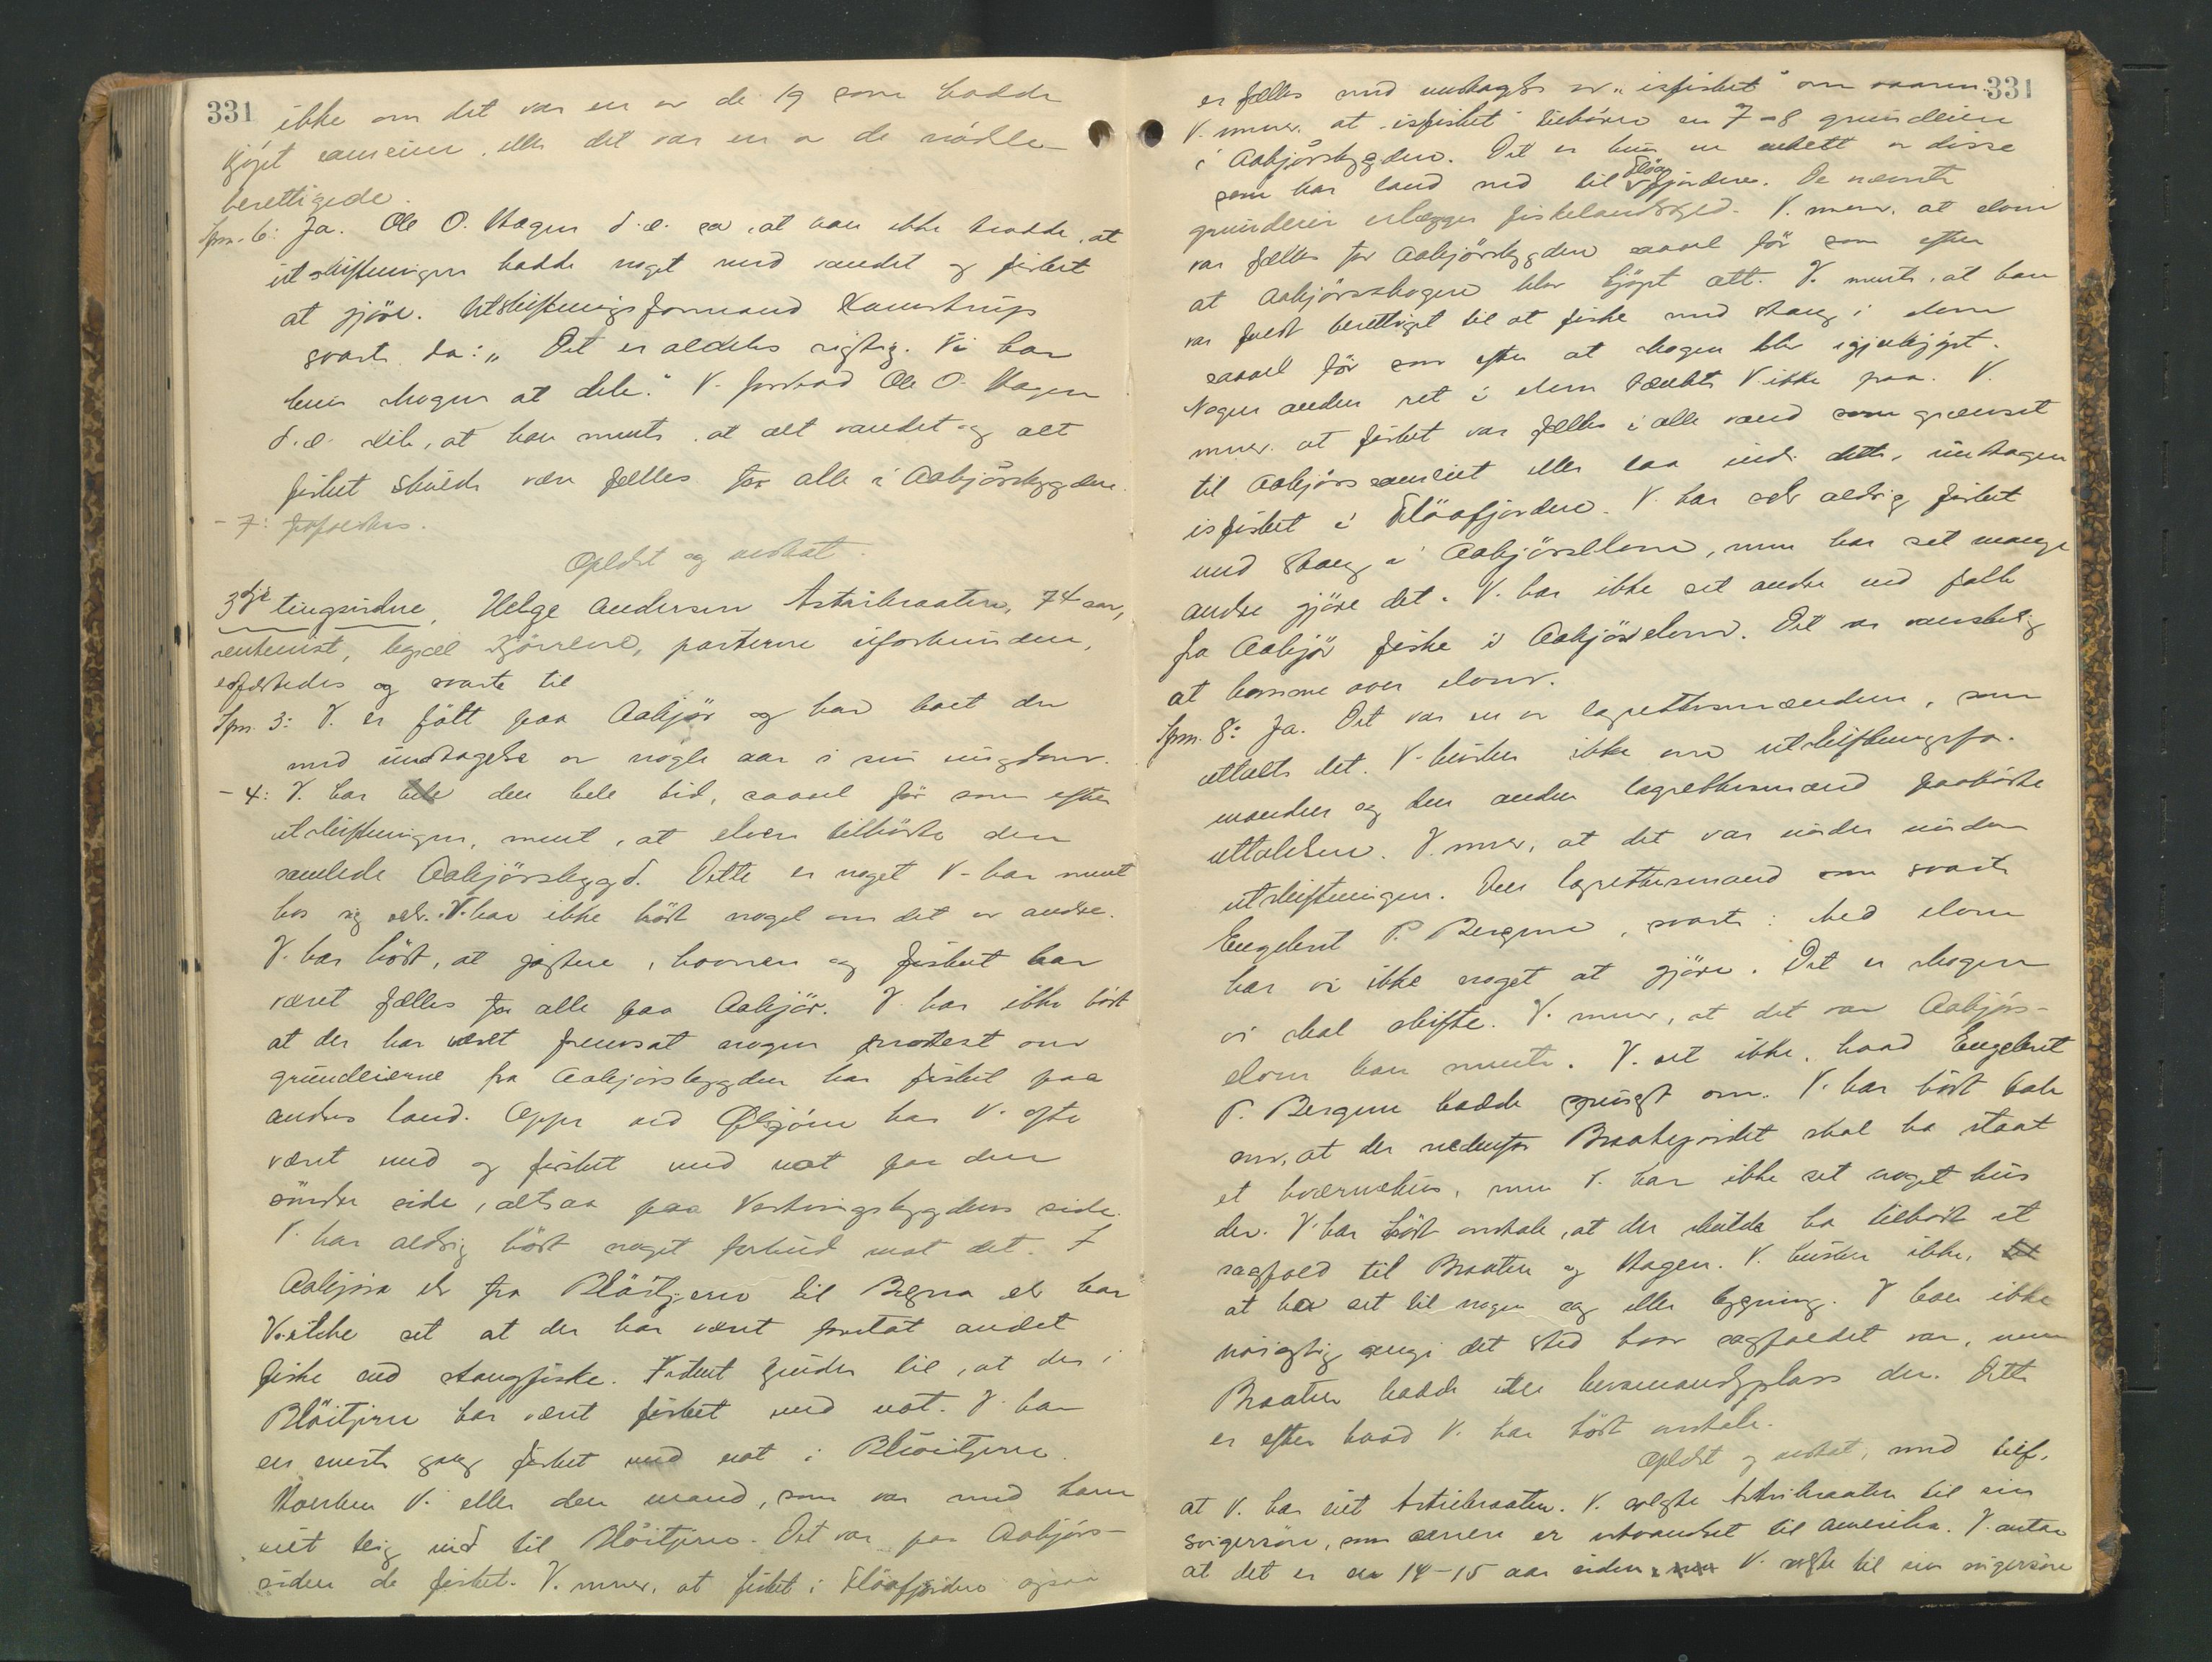 331
ikke om det var en av de 19 som hadde
kjöpt sameiene, eller det var en av de
berettigede.
Spm. 6: Ja. Ole O. Hagen d.æ. sa, at han ikke trodde, at
utskiftningen hadde noget med vandet og fisket
at gjöre. Utskiftningsformand Kamstrup
svarte da: „Det er aldeles rigtig. Vi har
kun skogen at dele." V. forstod Ole O. Hagen
d.æ. slik, at han mente, at alt vandet og alt
fisket skulde være fælles for alle i Aabjörsbygden.
- 7: frafaldes.
Oplest og vedtat.
3dje tingsvidne, Helge Andersen Astribraaten, 74 aar,
rentenist, parterne uforbunden,
edfæstedes og svarte til
Spm. 3: V. er født paa Aabjör og har boet der
med undtagelse av nogle aar i sin ungdom.
- 4: V. har den hele tid, saavel för som efter
utskiftningen, ment, at elven tilhörte den
samlede Aabjörsbygd. Dette er noget V. har ment
hos sig selv. V. har ikke hört noget om det av andre.
V. har hört, at jagten, havnen og fisket har
været fælles for alle paa Aabjör. V. har ikke hört
at der har været fremsat nogen protest om
grundeierne fra Aabjörsbygden har fisket paa
andres land. Oppe ved Ölsjöen har V. ofte
været med og fisket med not paa den
söndre side, altsaa paa Vestringsbygdens side.
V. har aldrig hört noget forbud mot det. I
Aabjöra elv fra Blöitjern til Begna elv har
V. ikke set at der har været foretat andet
fiske end stangfiske. V. kjender til, at der i
Blöitjern har været fisket med not. V. har
en eneste gang fisket med not i Blöitjern.
Hverken V. eller den mand, som var med ham
eiet teig ned til Blöitjern. Det var paa Aabjörs-
siden de fisket. V. mener, at fisket i Flöafjorden ogsaa
331
er fælles med undtagelse av „isfisket" om vaaren.
V. mener, at „isfisket" tilhörer en 7-8 grundeiere
i Aabjörsbygden. Det er kun en enkelt av disse
som har land ned til Flöafjorden. De nævnte
grundeiere erlægger fiskelandskyld. V. mener, at elven
var fælles for Aabjörsbygden saavel för som efter
at Aabjörsskogen blev kjöpt att. V. mente, at han
var fuldt berettiget til at fiske med stang i elven
saavel för som efter at skogen blev igjenkjöpt.
Nogen anden ret i elven tænkte V. ikke paa. V.
mener at fisket var fælles i alle vand som grænset
til Aabjörssameiet eller laa indi dette, undtagen
isfisket i Flöafjorden. V. har selv aldrig fisket
med stang i Aabjörselven, men har set mange
andre gjöre det. V. har ikke set andre end folk
fra Aabjör fiske i Aabjörselven. Det var vanskelig
at komme over elven.
Spm. 8: Ja. Det var en av lagrettesmændene, som
uttalte det. V. husker ikke om utskiftningsfor-
manden og den anden lagrettesmand paahörte
uttalelsen. V. mener, at det var under
utskiftningen. Den lagrettesmand som svarte
Engebret P. Bergene, svarte: Med elven
har vi ikke noget at gjöre. Det er skogen
vi skal skifte. V. mener, at det var Aabjörs-
elven han mente. V. vet ikke, hvad Engebret
P. Bergene hadde spurgt om. V. har hört tale
om, at der nedenfor Braatejordet skal ha staat
et kværnehus, men V. har ikke set noget hus
der. V. har hört omtale, at der skulde ha tilhört et
sagfald til Braaten og Hagen. V. husker ikke,
at ha set til nogen sag eller bygning. V. kan ikke
nöiagtig angi det sted hvor sagfaldet var, men
Braaten hadde husmandsplass der. Dette
er efter hvad V. har hört omtale.
Oplest og vedtat, med tilf.
at V. har eiet Astribraaten. V. solgte Astribraaten til sin
svigersön, som senere er utvandret til Amerika. V. antar
at det er en 14-15 aar siden V. solgte til sin svigersön